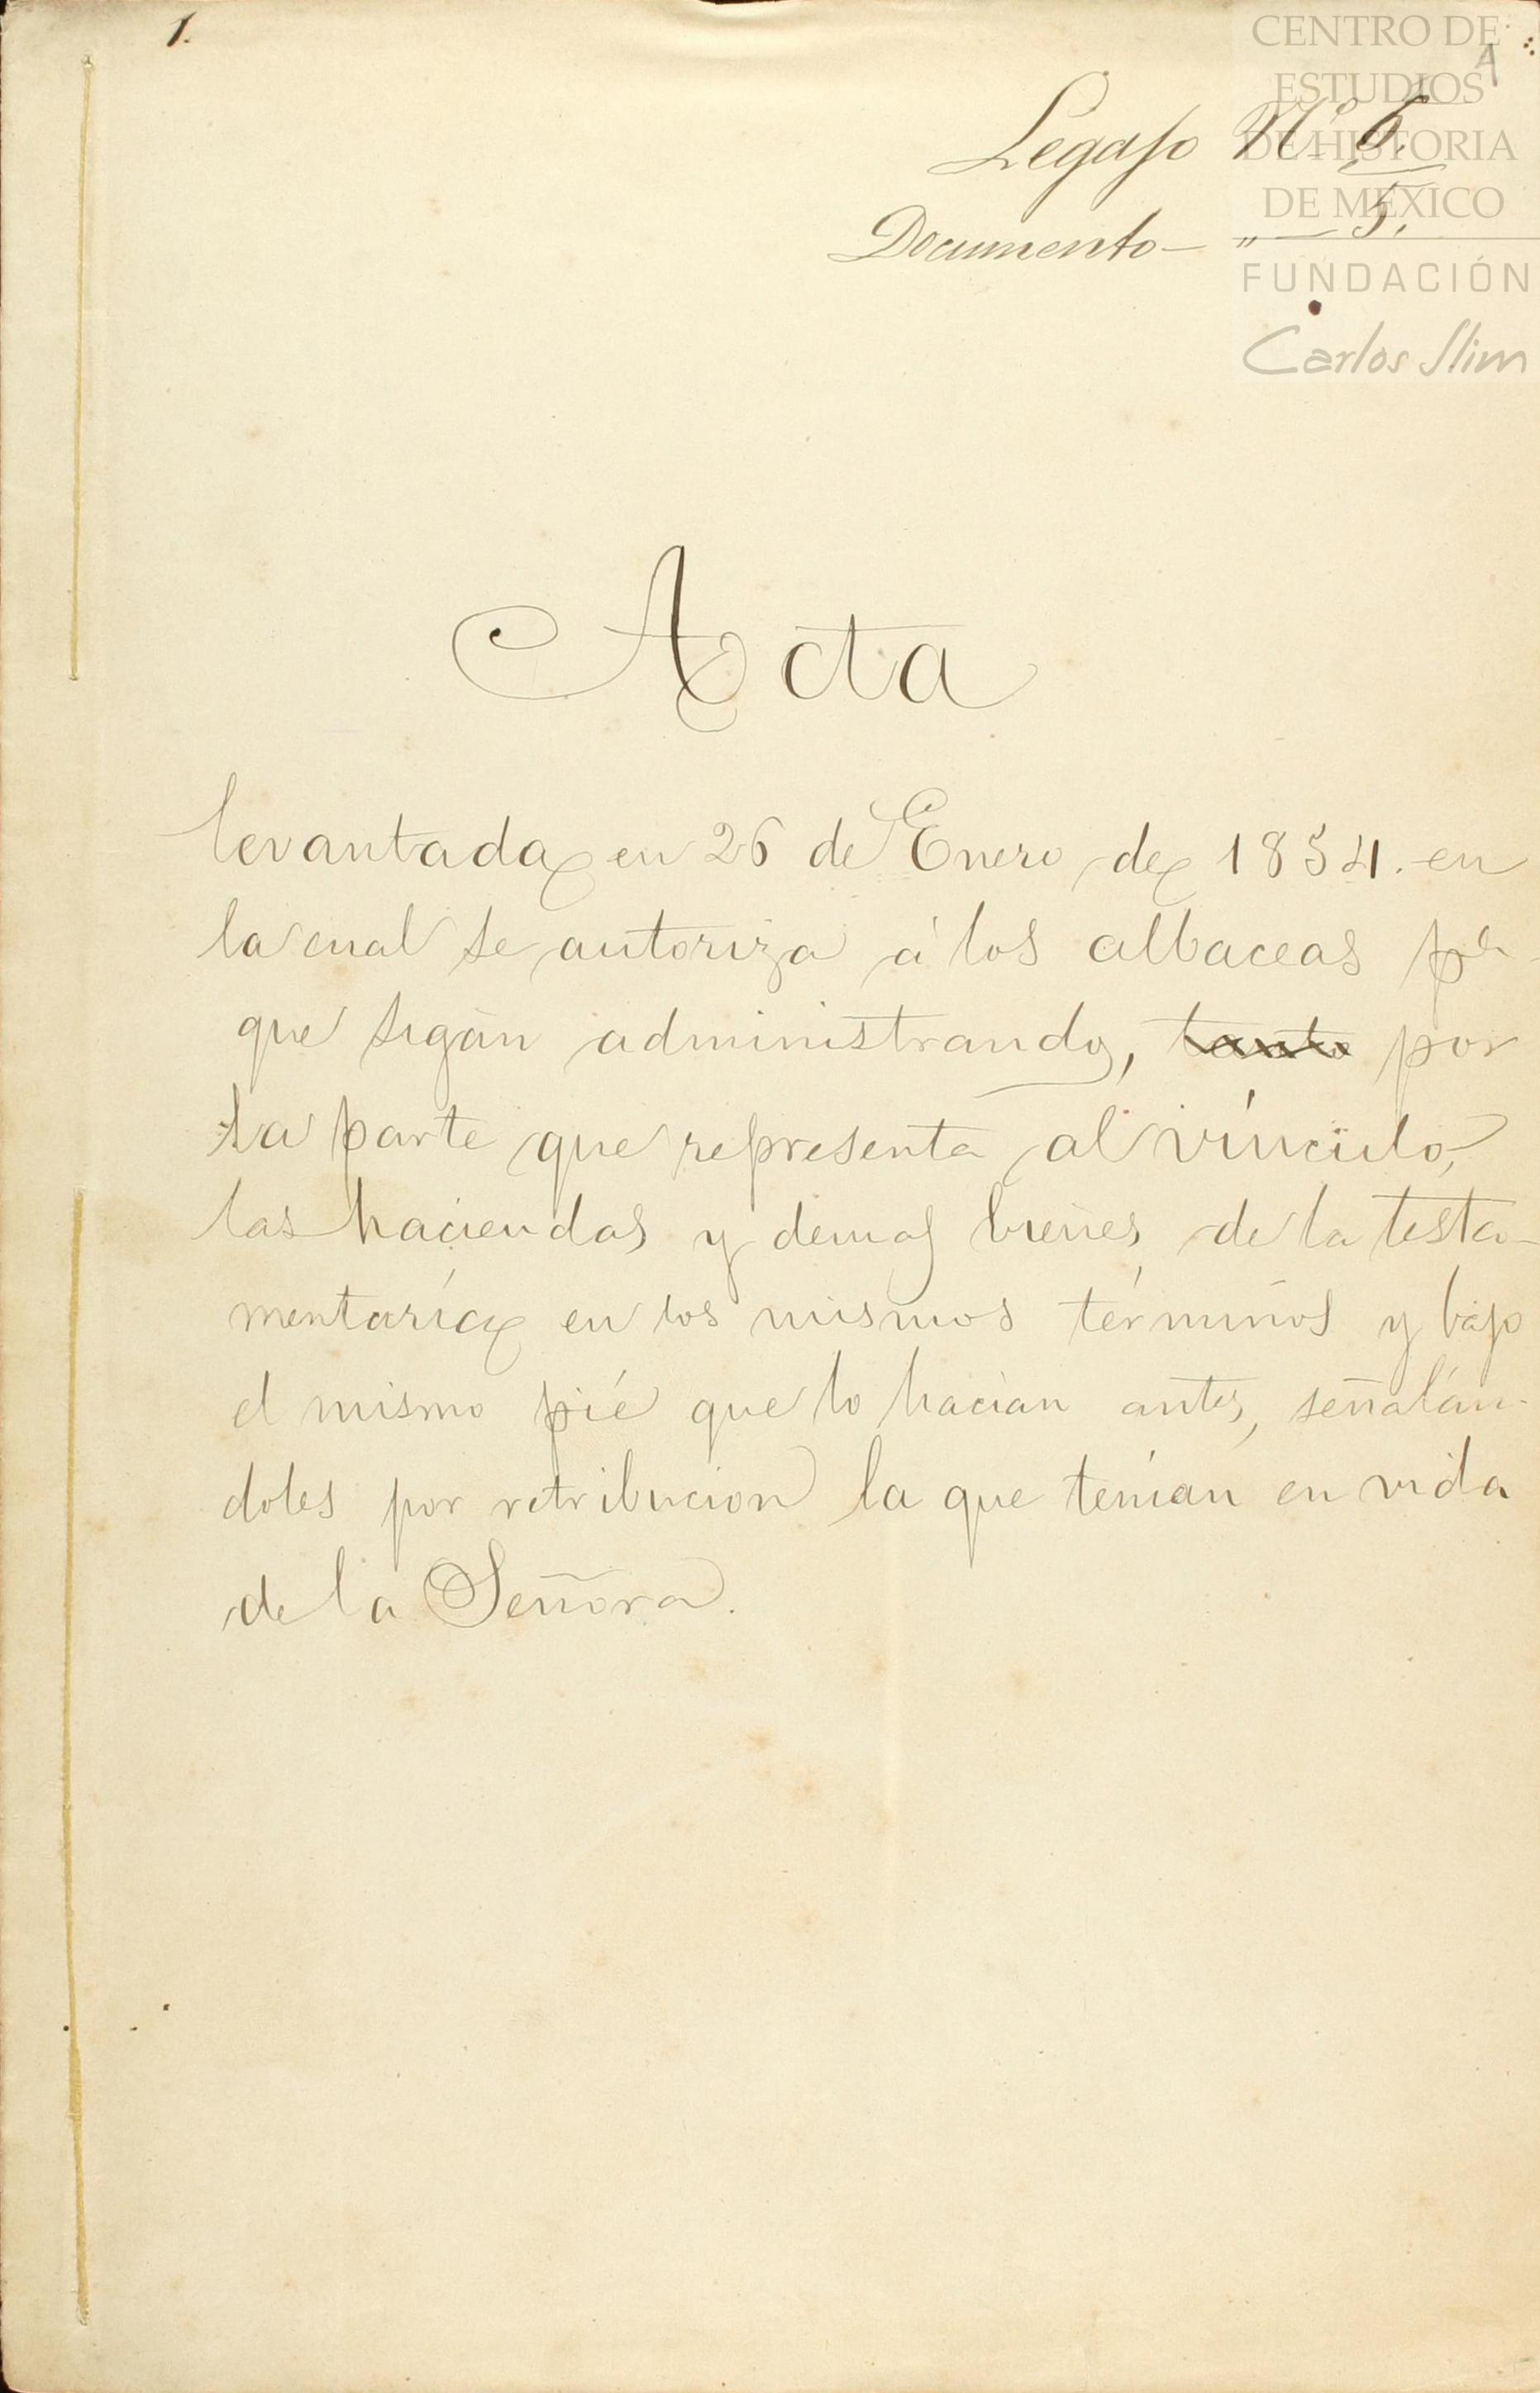 1.
CENTRO DE
ESTUDIOS
DE HISTORIA
DE MEXICO
FUNDACIÓN
Carlos Slim
Legajo Nº 6.
Documento — „ — 5.
Acta
levantada en 26 de Enero de 1854. en
la cual se autoriza á los albaceas pa
que sigan administrando, tanto por
la parte que representa al vínculo,
las haciendas y demas bienes de la testa-
mentaría en los mismos términos y bajo
el mismo pié que lo hacian antes, señalán-
doles por retribucion la que tenían en vida
de la Señora.